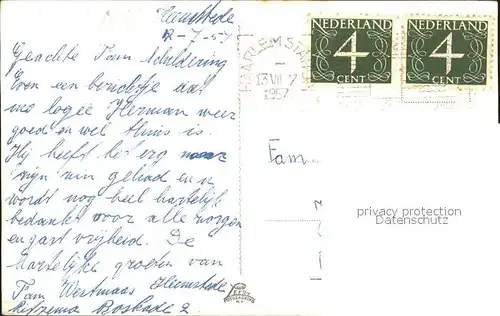 Heemstede
12-7-57
Geachte Fam Scheldering
Even een berichtje dat
ons logee Herman weer
goed en wel thuis is.
Hij heeft het erg naar
zijn zin gehad en u
wordt nog heel hartelijk
bedankt voor alle zorgen
en gast vrijheid. De
hartelijke groeten van
Fam Westmaas Heemstede
Boskade 2
HAARLEM STA
13 VII 7
1957
NEDERLAND NEDERLAND
4 4
CENT CENT
Fam
privacy protection
Datenschutz